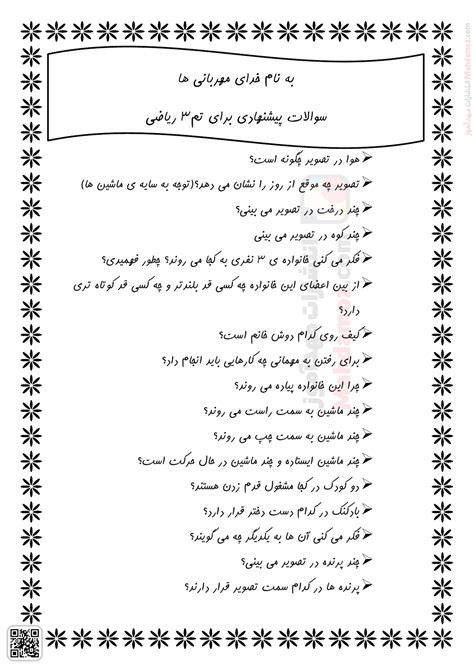 به نام خدای مهربانی ها
سوالات پیشنهادی برای تم۳ ریاضی
هوا در تصویر چگونه است؟
تصویر چه موقع از روز را نشان می دهد؟(توجه به سایه ی ماشین ها)
چند درخت در تصویر می بینی؟
چند کوه در تصویر می بینی
فکر می کنی خانواده ی ۳ نفری به کجا می روند؟ چطور فهمیدی؟
از بین اعضای این خانواده چه کسی قد بلندتر و چه کسی قد کوتاه تری
دارد؟
کیف روی کدام دوش خانم است؟
برای رفتن به مهمانی چه کارهایی باید انجام داد؟
چرا این خانواده پیاده می روند؟
چند ماشین به سمت راست می روند؟
چند ماشین به سمت چپ می روند؟
چند ماشین ایستاده و چند ماشین در حال حرکت است؟
دو کودک در کجا مشغول قدم زدن هستند؟
بادکنک در کدام دست دختر قرار دارد؟
فکر می کنی آن ها به یکدیگر چه می گویند؟
چند پرنده در تصویر می بینی؟
پرنده ها در کدام سمت تصویر قرار دارند؟
انتشارات مهدآموز Mahdamoz.com
انتشارات مهدآموز
Mahdamoz.com